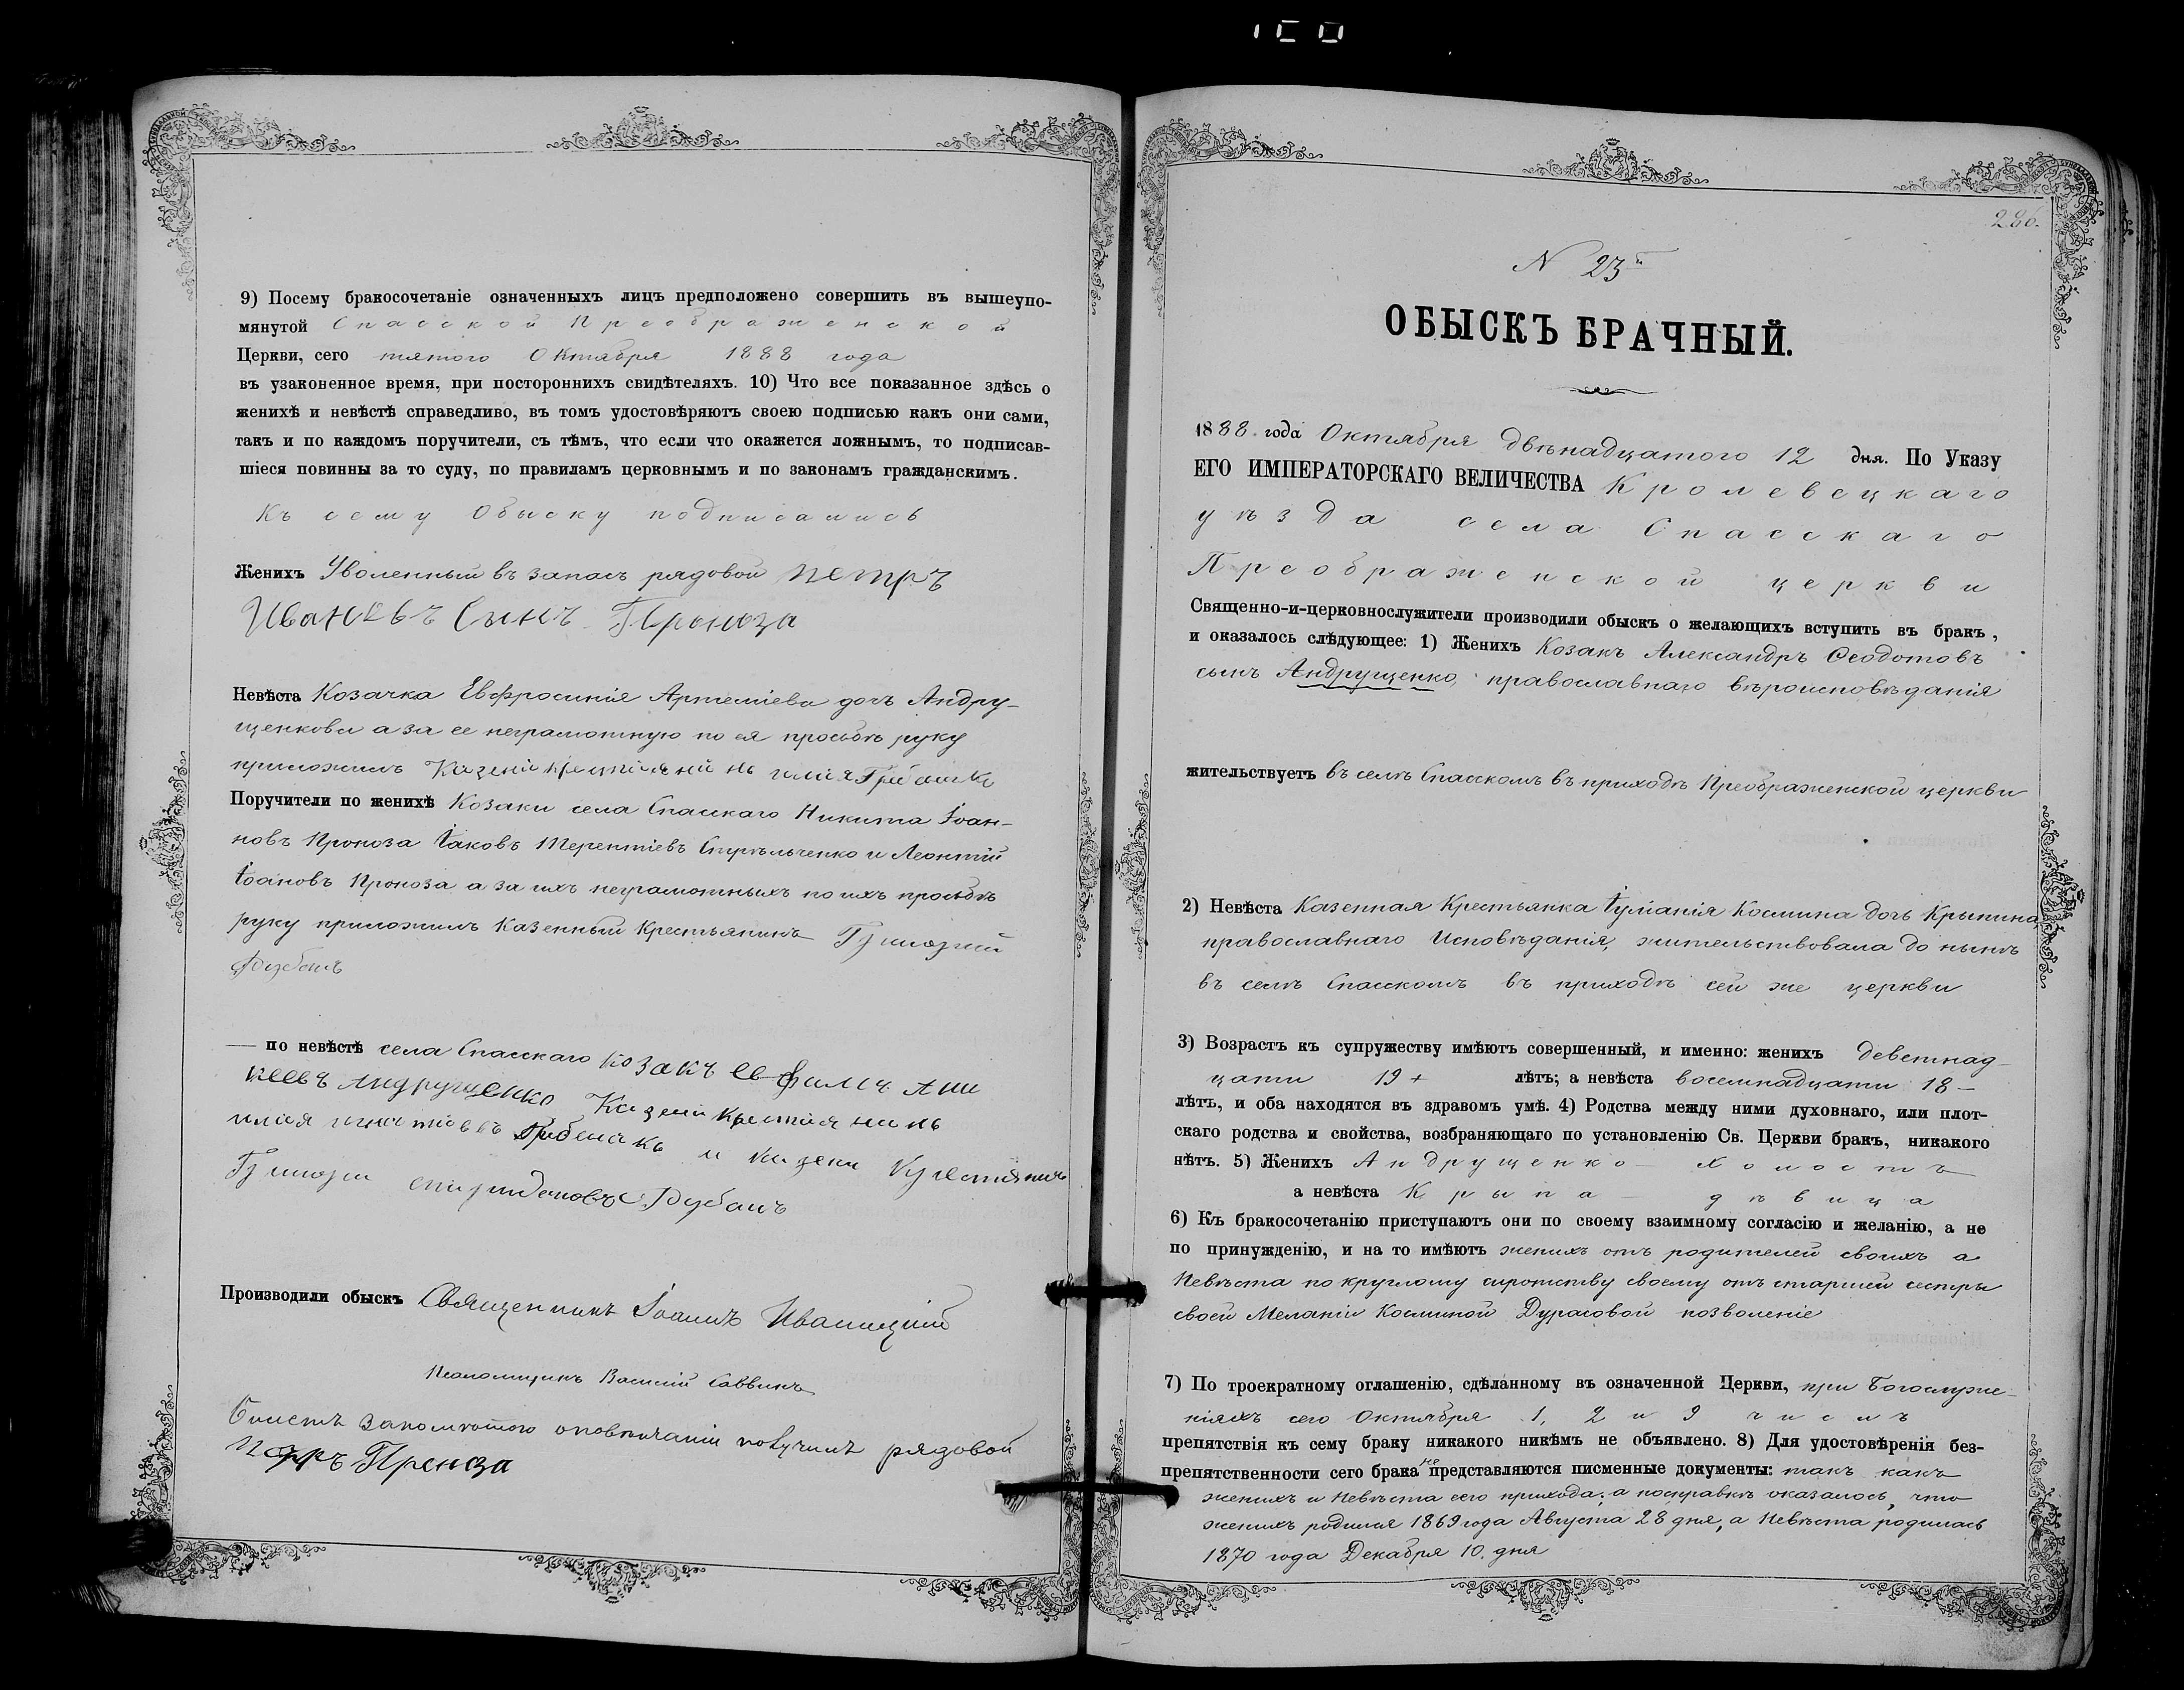 9) Посему бракосочетаніе означенныхъ лицъ предположено совершить въ вышеупо-
мянутой Спасской Преображенской
Церкви, сего пятого Октября 1888 года
въ узаконенное время, при постороннихъ свидѣтеляхъ. 10) Что все показанное здѣсь о
женихѣ и невѣстѣ справедливо, въ томъ удостовѣряютъ своею подписью какъ они сами,
такъ и по каждомъ поручители, съ тѣмъ, что если что окажется ложнымъ, то подписав-
шіеся повинны за то суду, по правиламъ церковнымъ и по законамъ гражданскимъ.
Къ сему Обыску подписались
Женихъ Уволенный въ запасъ рядовой Петръ
Ивановъ Сынъ Проноза
Невѣста Козачка Евфросинія Артеміева дочь Андру-
щенкова а за ее неграмотную по ея просьбѣ руку
приложилъ
Поручители по женихѣ Козаки села Спасскаго Никита Іоан-
новъ Проноза Іаковъ Терентіевъ Стрѣльченко и Леонтій
Іоановъ Проноза а за ихъ неграмотныхъ по ихъ просьбѣ
руку приложилъ Казенный Крестьянинъ Григорій
— по невѣстѣ села Спасскаго козакъ
Андрущенко
и
Производили обыскъ Священникъ Іоаннъ Иваницкій
Псаломщикъ Василій Саввичъ
Билетъ получилъ рядовой
Петръ Проноза
286.
N 23й
ОБЫСКЪ БРАЧНЫЙ.
1888 года Октября двѣнадцатого 12 дня. По Указу
ЕГО ИМПЕРАТОРСКАГО ВЕЛИЧЕСТВА Кролевецкаго
уѣзда села Спасскаго
Преображенской церкви
Священно-и-церковнослужители производили обыскъ о желающихъ вступить въ бракъ,
и оказалось слѣдующее: 1) Женихъ Козакъ Александръ Ѳеодотовъ
сынъ Андрущенко, православнаго вѣроисповѣданія
жительствуетъ въ селѣ Спасскомъ въ приходѣ Преображенской церкви
2) Невѣста Казенная Крестьянка Іуліанія Космина дочь Крыпина,
православнаго Исповѣданія, жительствовала до нынѣ
въ селѣ Спасскомъ въ приходѣ сей же церкви
3) Возрастъ къ супружеству имѣютъ совершенный, и именно: женихъ деветнад-
цати 19 + лѣтъ; а невѣста восемнадцати 18 —
лѣтъ, и оба находятся въ здравомъ умѣ. 4) Родства между ними духовнаго, или плот-
скаго родства и свойства, возбраняющаго по установленію Св. Церкви бракъ, никакого
нѣтъ. 5) Женихъ Андрущенко — холостъ
а невѣста Крыпа — дѣвица
6) Къ бракосочетанію приступаютъ они по своему взаимному согласію и желанію, а не
по принужденію, и на то имѣютъ женихъ отъ родителей своихъ а
Невѣста по круглому сиротству своему отъ старшей сестры
своей Меланіи Косминой Дурасовой позволеніе
7) По троекратному оглашенію, сдѣланному въ означенной Церкви, при Богослуже-
ніяхъ сего Октября 1, 2 и 9 числъ
препятствія къ сему браку никакого никѣмъ не объявлено. 8) Для удостовѣренія без-
препятственности сего брака не представляются писменные документы: такъ какъ
женихъ и Невѣста сего прихода; а посправкѣ оказалось, что
женихъ родился 1869 года Августа 28 дня, а Невѣста родилась
1870 года Декабря 10. дня